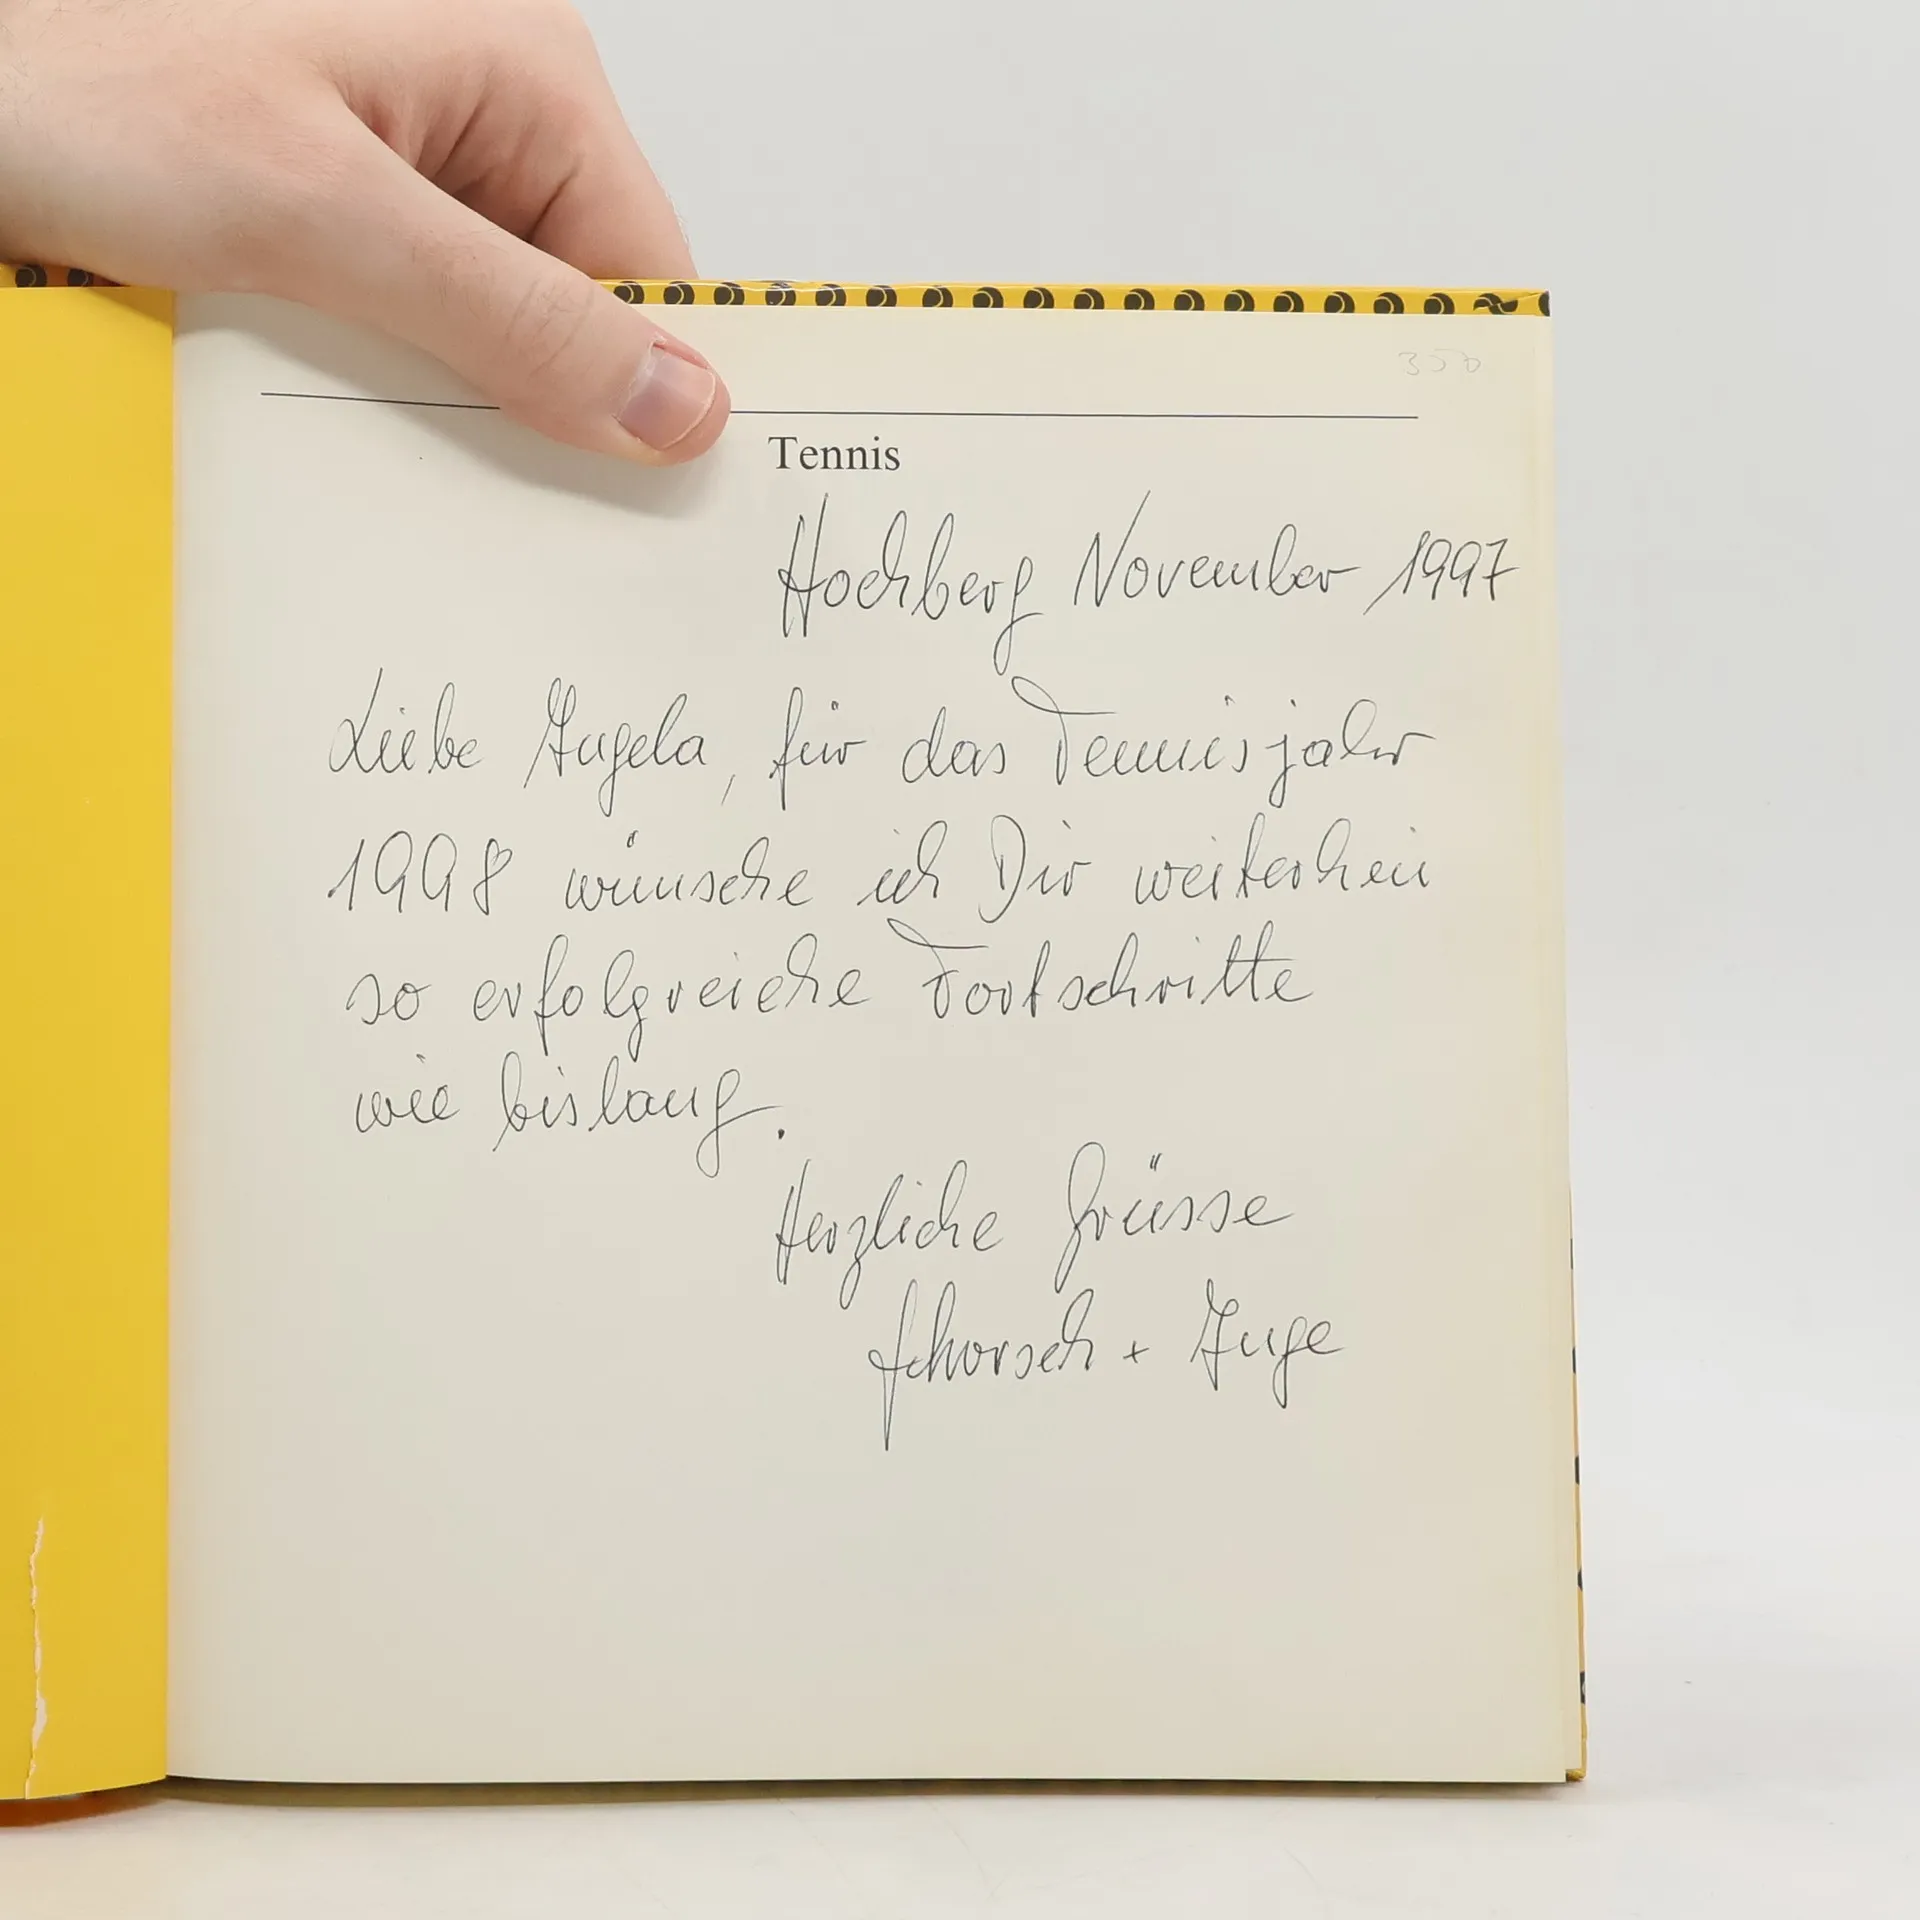 350
Tennis
Hochberg November 1997
Liebe Angela, für das Tennisjahr
1998 wünsche ich Dir weiterhin
so erfolgreiche Fortschritte
wie bislang.
Herzliche Grüsse
Schorsch + Inge